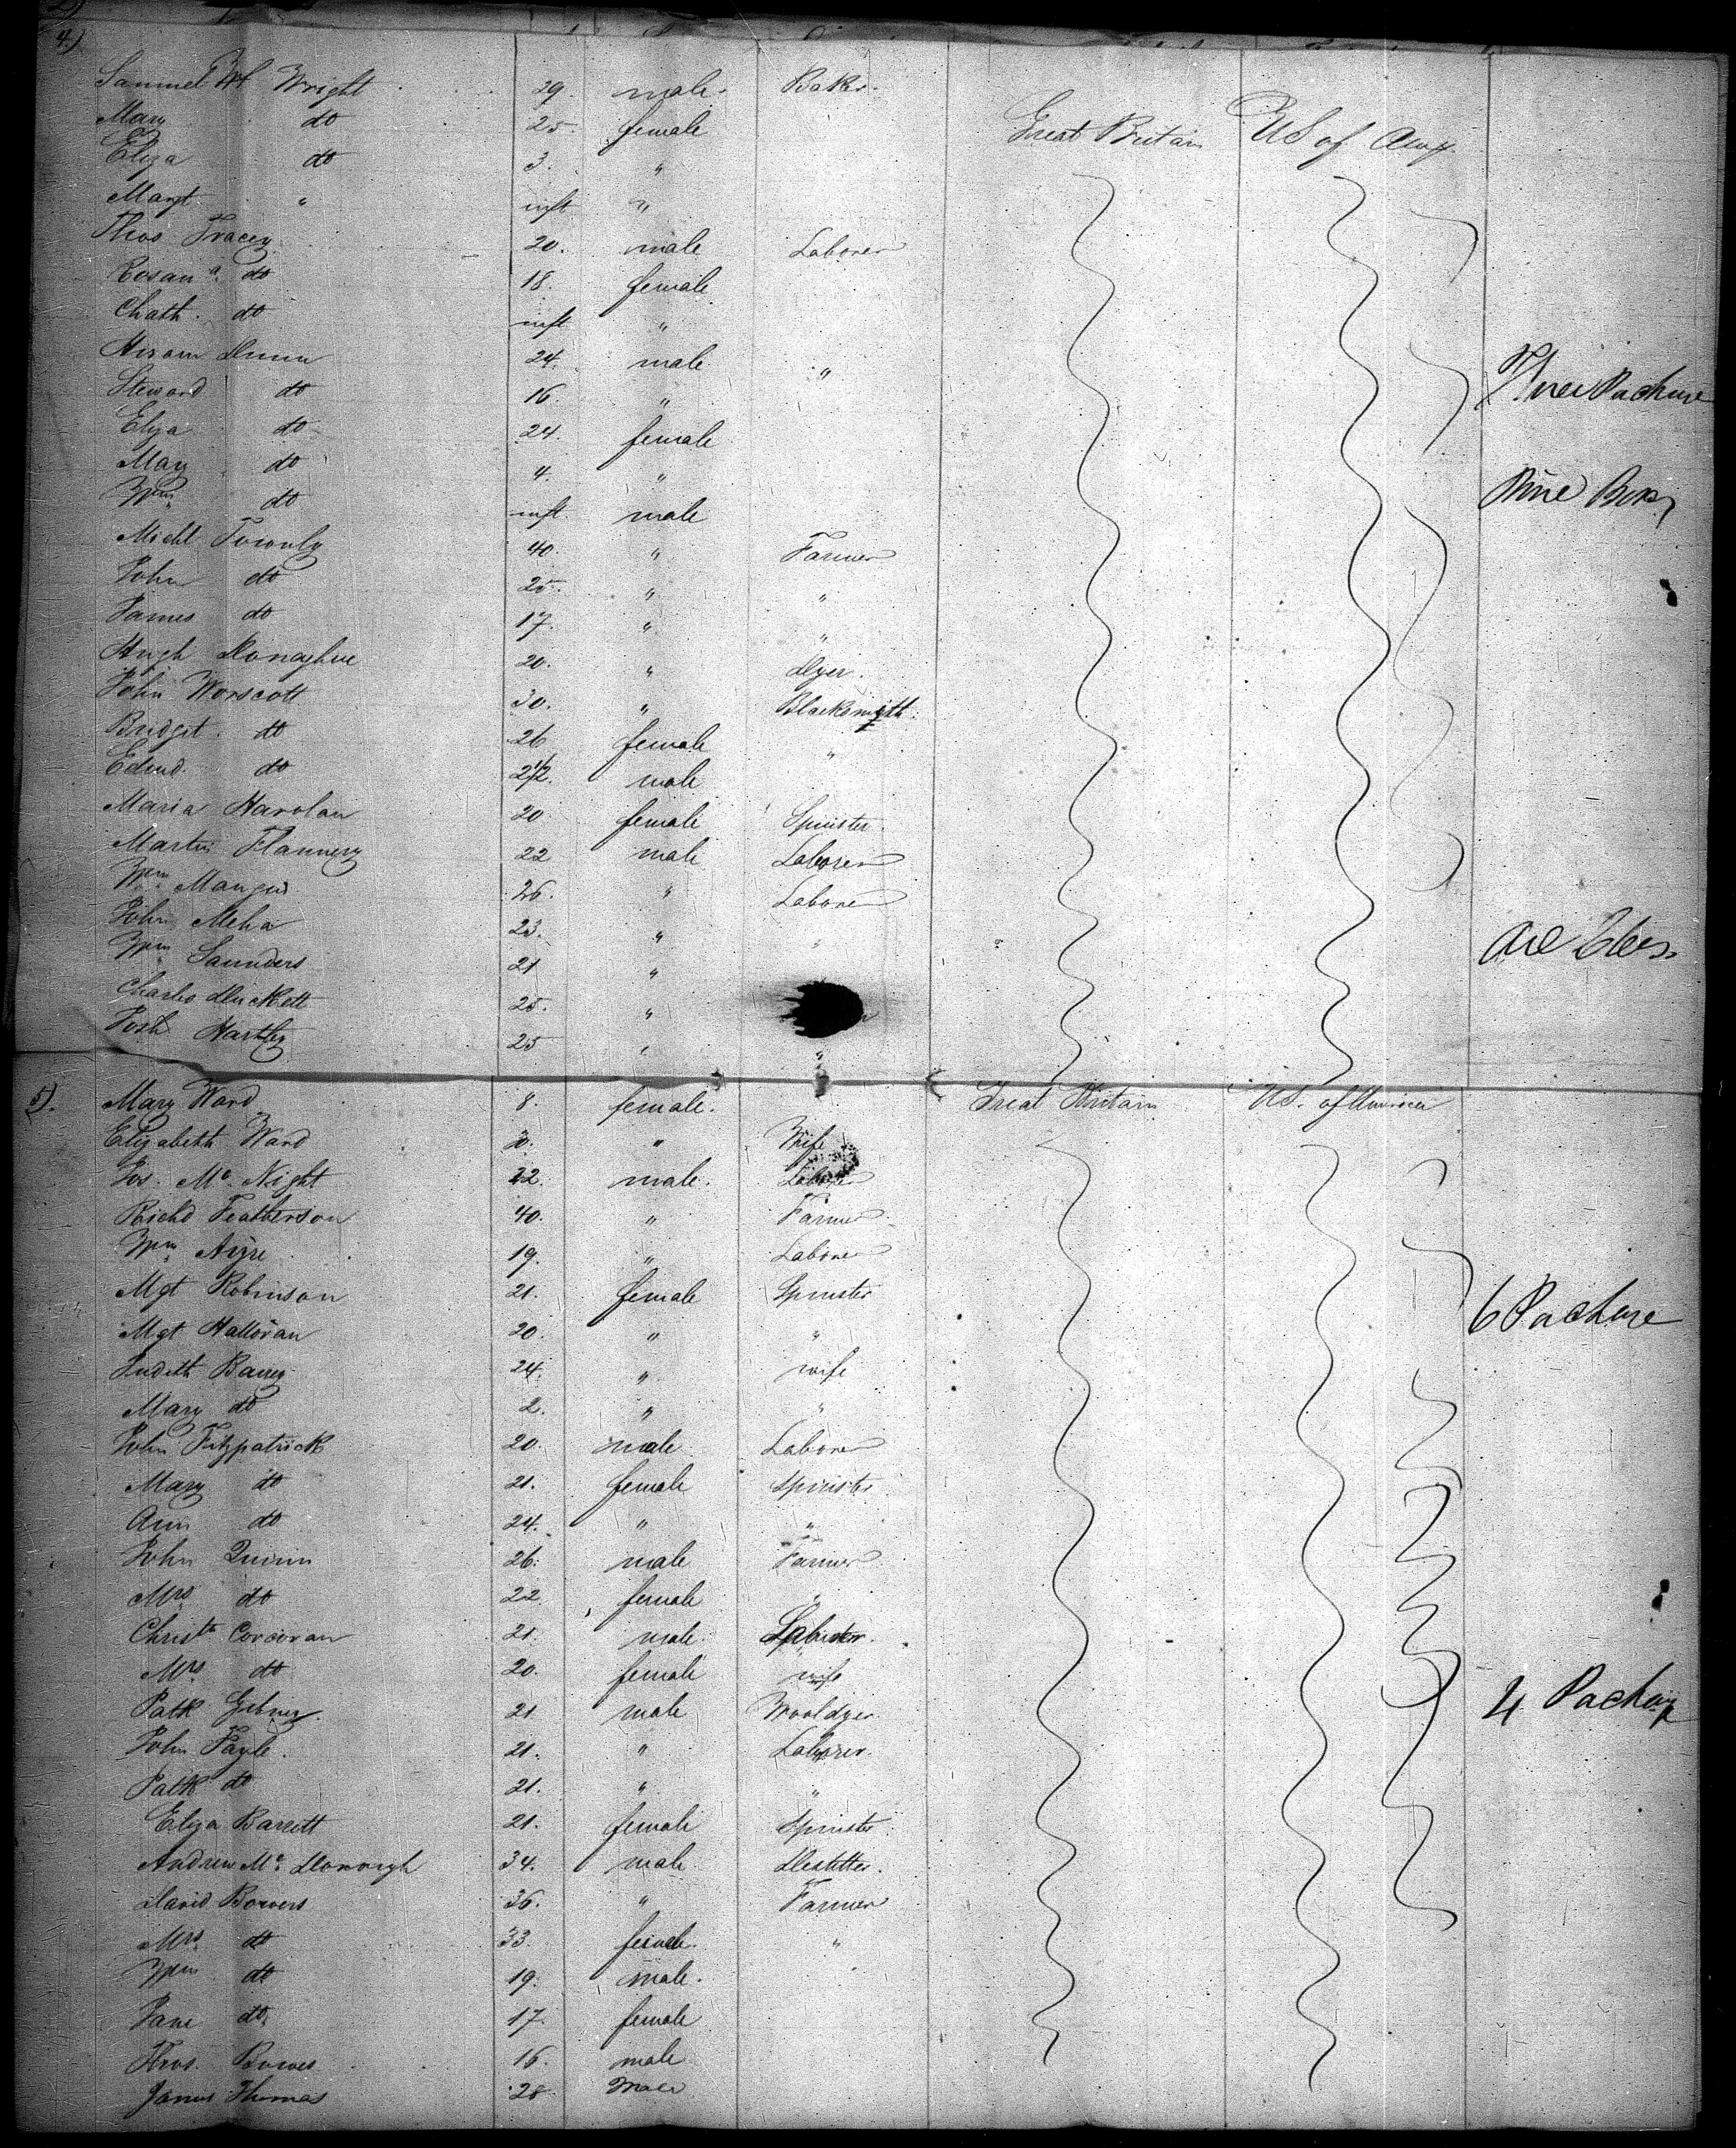 4)
Samuel W Wright 29. male. Baker.
Mary do 25. female Great Britain US of Am
Eliza do 3. "
Margt " inft "
Thos Tracey 20. male Laborer
Rosana do 18. female
Cath. do inft "
Hiram Dunn 24. male "
Steward do 16. " Three Package
Eliza do 24. female
Mary do 4. "
Wm do inft. male Nine Box
Michl Townly 40. " Farmer
John do 25. " "
James do 17. " "
Hugh Donaghue 20. " Dyer.
John Worscott 30. " Blacksmith.
Bridget. do 26 female "
Edmd. do 2 1/2. male
Maria Harolan 20 female Spinster.
Martin Flannery 22 male Laborer
Wm Mangin 26. " Laborer
John Meha 23. " "
Wm Saunders 21 "
Charles Duckett 25. "
Josh Hartley 25 " "
5). Mary Ward 8. female. Great Britain US. of America
Elizabeth Ward 30. " Wife
Jos. Mc Night 22. male. Laborer
Richd Featherson 40. " Farmer
Wm Ayre 19. " Laborer
Mgt Robinson 21. female Spinster
Mgt Halloran 20. " " 6 Package
Judith Barry 24. " wife
Mary do 2. " "
John Fitzpatrick 20. male Laborer
Mary do 21. female Spinster
Ann do 24. " "
John Quinn 26. male Farmer
Mrs do 22 female "
Christr Corcoran 21. male.
Mrs do 20. female wife
Patk Gibney. 21 male Wooldyer 4 Package
John Fayle. 21. " Laborer.
Patk do 21. " "
Eliza Barrett 21. female Spinster
Andrew Mc Donough 34. male Distiller.
David Bowers 36. " Farmer
Mrs do 33. female. "
Wm do 19. male.
Jane do. 17. female
Thos. Bowes 16. male
James Thomas 28. Male